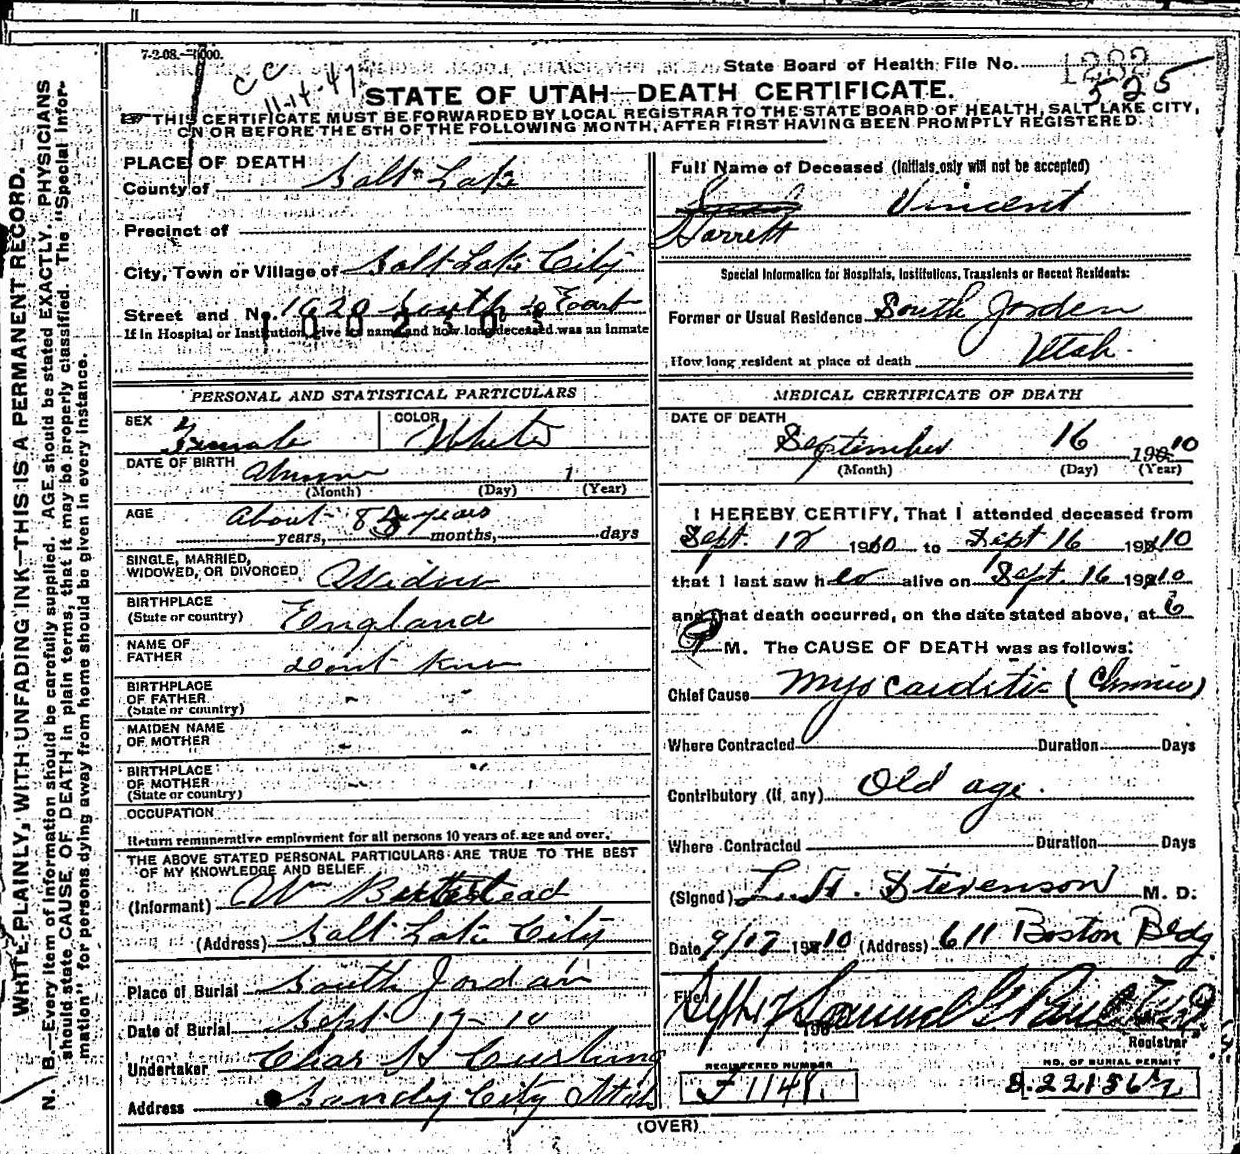 7-2-08.
C C
11-14-47
State Board of Health File No. 1282
525
STATE OF UTAH—DEATH CERTIFICATE.
THIS CERTIFICATE MUST BE FORWARDED BY LOCAL REGISTRAR TO THE STATE BOARD OF HEALTH, SALT LAKE CITY,
ON OR BEFORE THE 5TH OF THE FOLLOWING MONTH, AFTER FIRST HAVING BEEN PROMPTLY REGISTERED.
WRITE PLAINLY, WITH UNFADING INK—THIS IS A PERMANENT RECORD.
N. B.—Every item of information should be carefully supplied. AGE should be stated EXACTLY. PHYSICIANS
should state CAUSE OF DEATH in plain terms, that it may be properly classified. The "Special Infor-
mation" for persons dying away from home should be given in every instance.
PLACE OF DEATH
County of Salt Lake
Precinct of
City, Town or Village of Salt Lake City
Street and No. South East
If in Hospital or Institution, give its name and how long deceased was an inmate
PERSONAL AND STATISTICAL PARTICULARS
SEX Female COLOR White
DATE OF BIRTH 1
(Month) (Day) (Year)
AGE About 85 years
years, months, days
SINGLE, MARRIED,
WIDOWED, OR DIVORCED Widow
BIRTHPLACE
(State or country) England
NAME OF
FATHER dont know
BIRTHPLACE
OF FATHER
(State or country)
MAIDEN NAME
OF MOTHER
BIRTHPLACE
OF MOTHER
(State or country)
OCCUPATION
Return remunerative employment for all persons 10 years of age and over.
THE ABOVE STATED PERSONAL PARTICULARS ARE TRUE TO THE BEST
OF MY KNOWLEDGE AND BELIEF
(Informant) Wm
(Address) Salt Lake City
Place of Burial South Jordan
Date of Burial Sept 17-10
Undertaker Chas
Address Sandy City Utah
Full Name of Deceased (Initials only will not be accepted)
Vincent
Garrett
Special Information for Hospitals, Institutions, Transients or Recent Residents:
Former or Usual Residence South Jorden
How long resident at place of death Utah.
MEDICAL CERTIFICATE OF DEATH
DATE OF DEATH
September 16 1910
(Month) (Day) (Year)
I HEREBY CERTIFY, That I attended deceased from
Sept. 12 1910 to Sept 16 1910
that I last saw her alive on Sept. 16 1910
and that death occurred, on the date stated above, at 6
P M. The CAUSE OF DEATH was as follows:
Chief Cause Myocarditis (Chronic)
Where Contracted Duration Days
Contributory (if any) Old age.
Where Contracted Duration Days
(Signed) Stevenson M. D.
Date 9/17 1910 (Address) 611 Boston Bldg
Filed Samuel G Paul
Registrar
REGISTERED NUMBER
F1148.
NO. OF BURIAL PERMIT
(OVER)